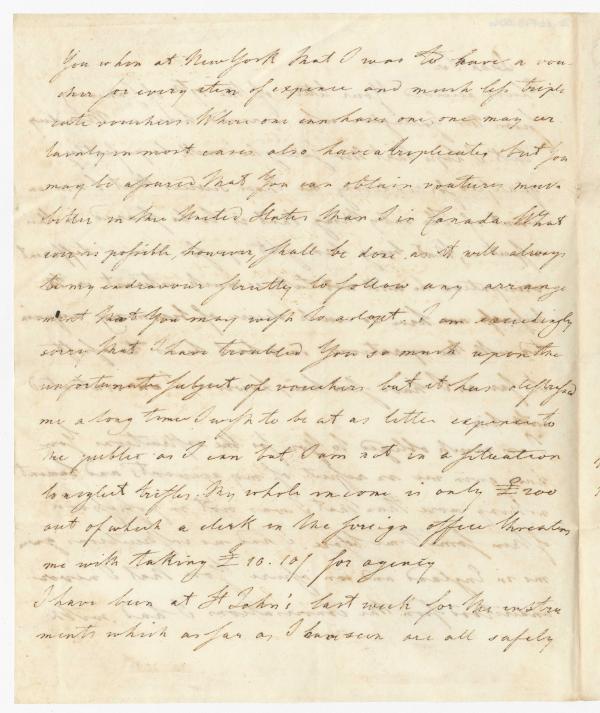 You when at New York that I was to have a vou-
cher for every item of expence and much less tripli
cate vouchers. Where one can have one, one may cer
tainly in most cases also have a triplicate, but you
may be assured that You can obtain vouchers much
better in the United States than I in Canada. What
ever is possible, however, shall be done as it will always
be my endeavour strictly to follow any arrange
ment that You may wish to adopt. I am exceedingly
sorry that I have troubled You so much upon the
unfortunate subject of vouchers but it has distressed
me a long time I wish to be at as little expence to
the public as I can but I am not in a situation
to neglect trifles. My whole income is only £200
out of which a clerk in the foreign office threatens
me with taking £10.10/ for agency
I have been at St John's last week for the instru
ments which as far as I have seen are all safely